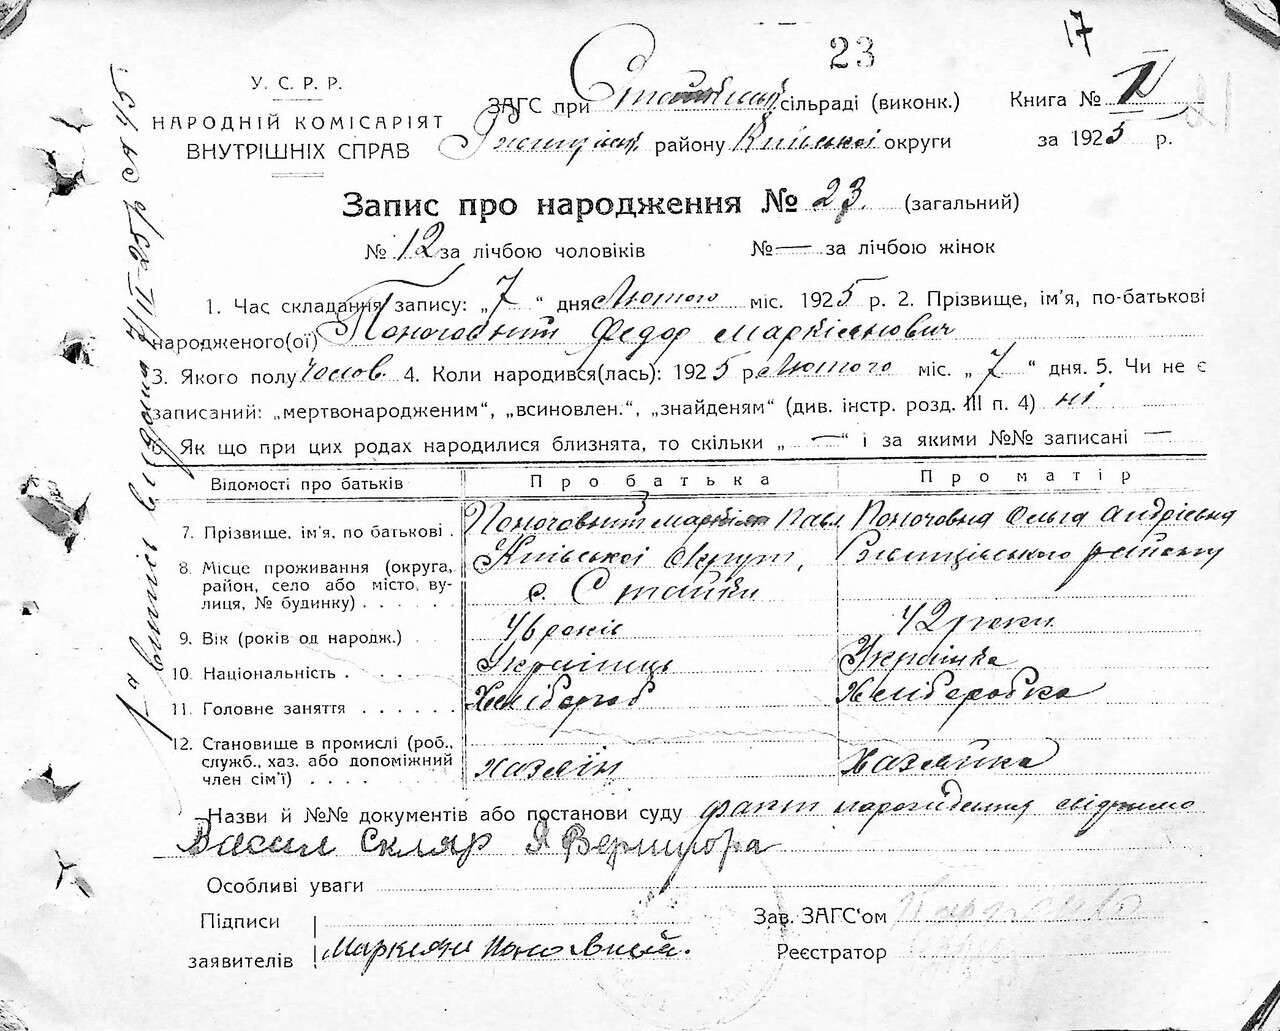 23
17
У. С. Р. Р.
НАРОДНІЙ КОМІСАРІЯТ
ВНУТРІШНІХ СПРАВ
ЗАГС при сільраді (виконк.)
району Київської округи
Книга №
за 1925 р.
Запис про народження № 23. (загальний)
№ 12 за лічбою чоловіків № — за лічбою жінок
1. Час складання запису: „7“ дня Лютого міс. 1925 р. 2. Прізвище, ім'я, по-батькові
народженого(ої) Поночовний Федор Маркіянович
3. Якого полу чолов. 4. Коли народився(лась): 1925 р. Лютого міс. „7“ дня. 5. Чи не є
записаний: „мертвонародженим“, „всиновлен.“, „знайденям“ (див. інстр. розд. III п. 4) ні
6. Як що при цих родах народилися близнята, то скільки „—“ і за якими №№ записані —
Відомості про батьків Про батька Про матір
7. Прізвище, ім'я, по батькові . Поночовний Маркіян Павл Поночовна Ольга Андрієвна
8. Місце проживання (округа, Київської Округи, району
район, село або місто, ву- с. Стайки
лиця, № будинку) . . . . . .
9. Вік (років од народж.) . 48 років 42 роки
10. Національність . . . . . Українець Українка
11. Головне заняття . . . . . . Хлібороб Хліборобка
12. Становище в промислі (роб.,
служб., хаз. або допоміжний хазяїн Хазяйка
член сім'ї) . . . .
Назви й №№ документів або постанови суду факт народження свідчимо
Васил Скляр Я Вернигора
Особливі уваги
Підписи
заявителів Маркіян
Зав. ЗАГС'ом
Реєстратор
1а витпіс видона 7/II-25р СА 45